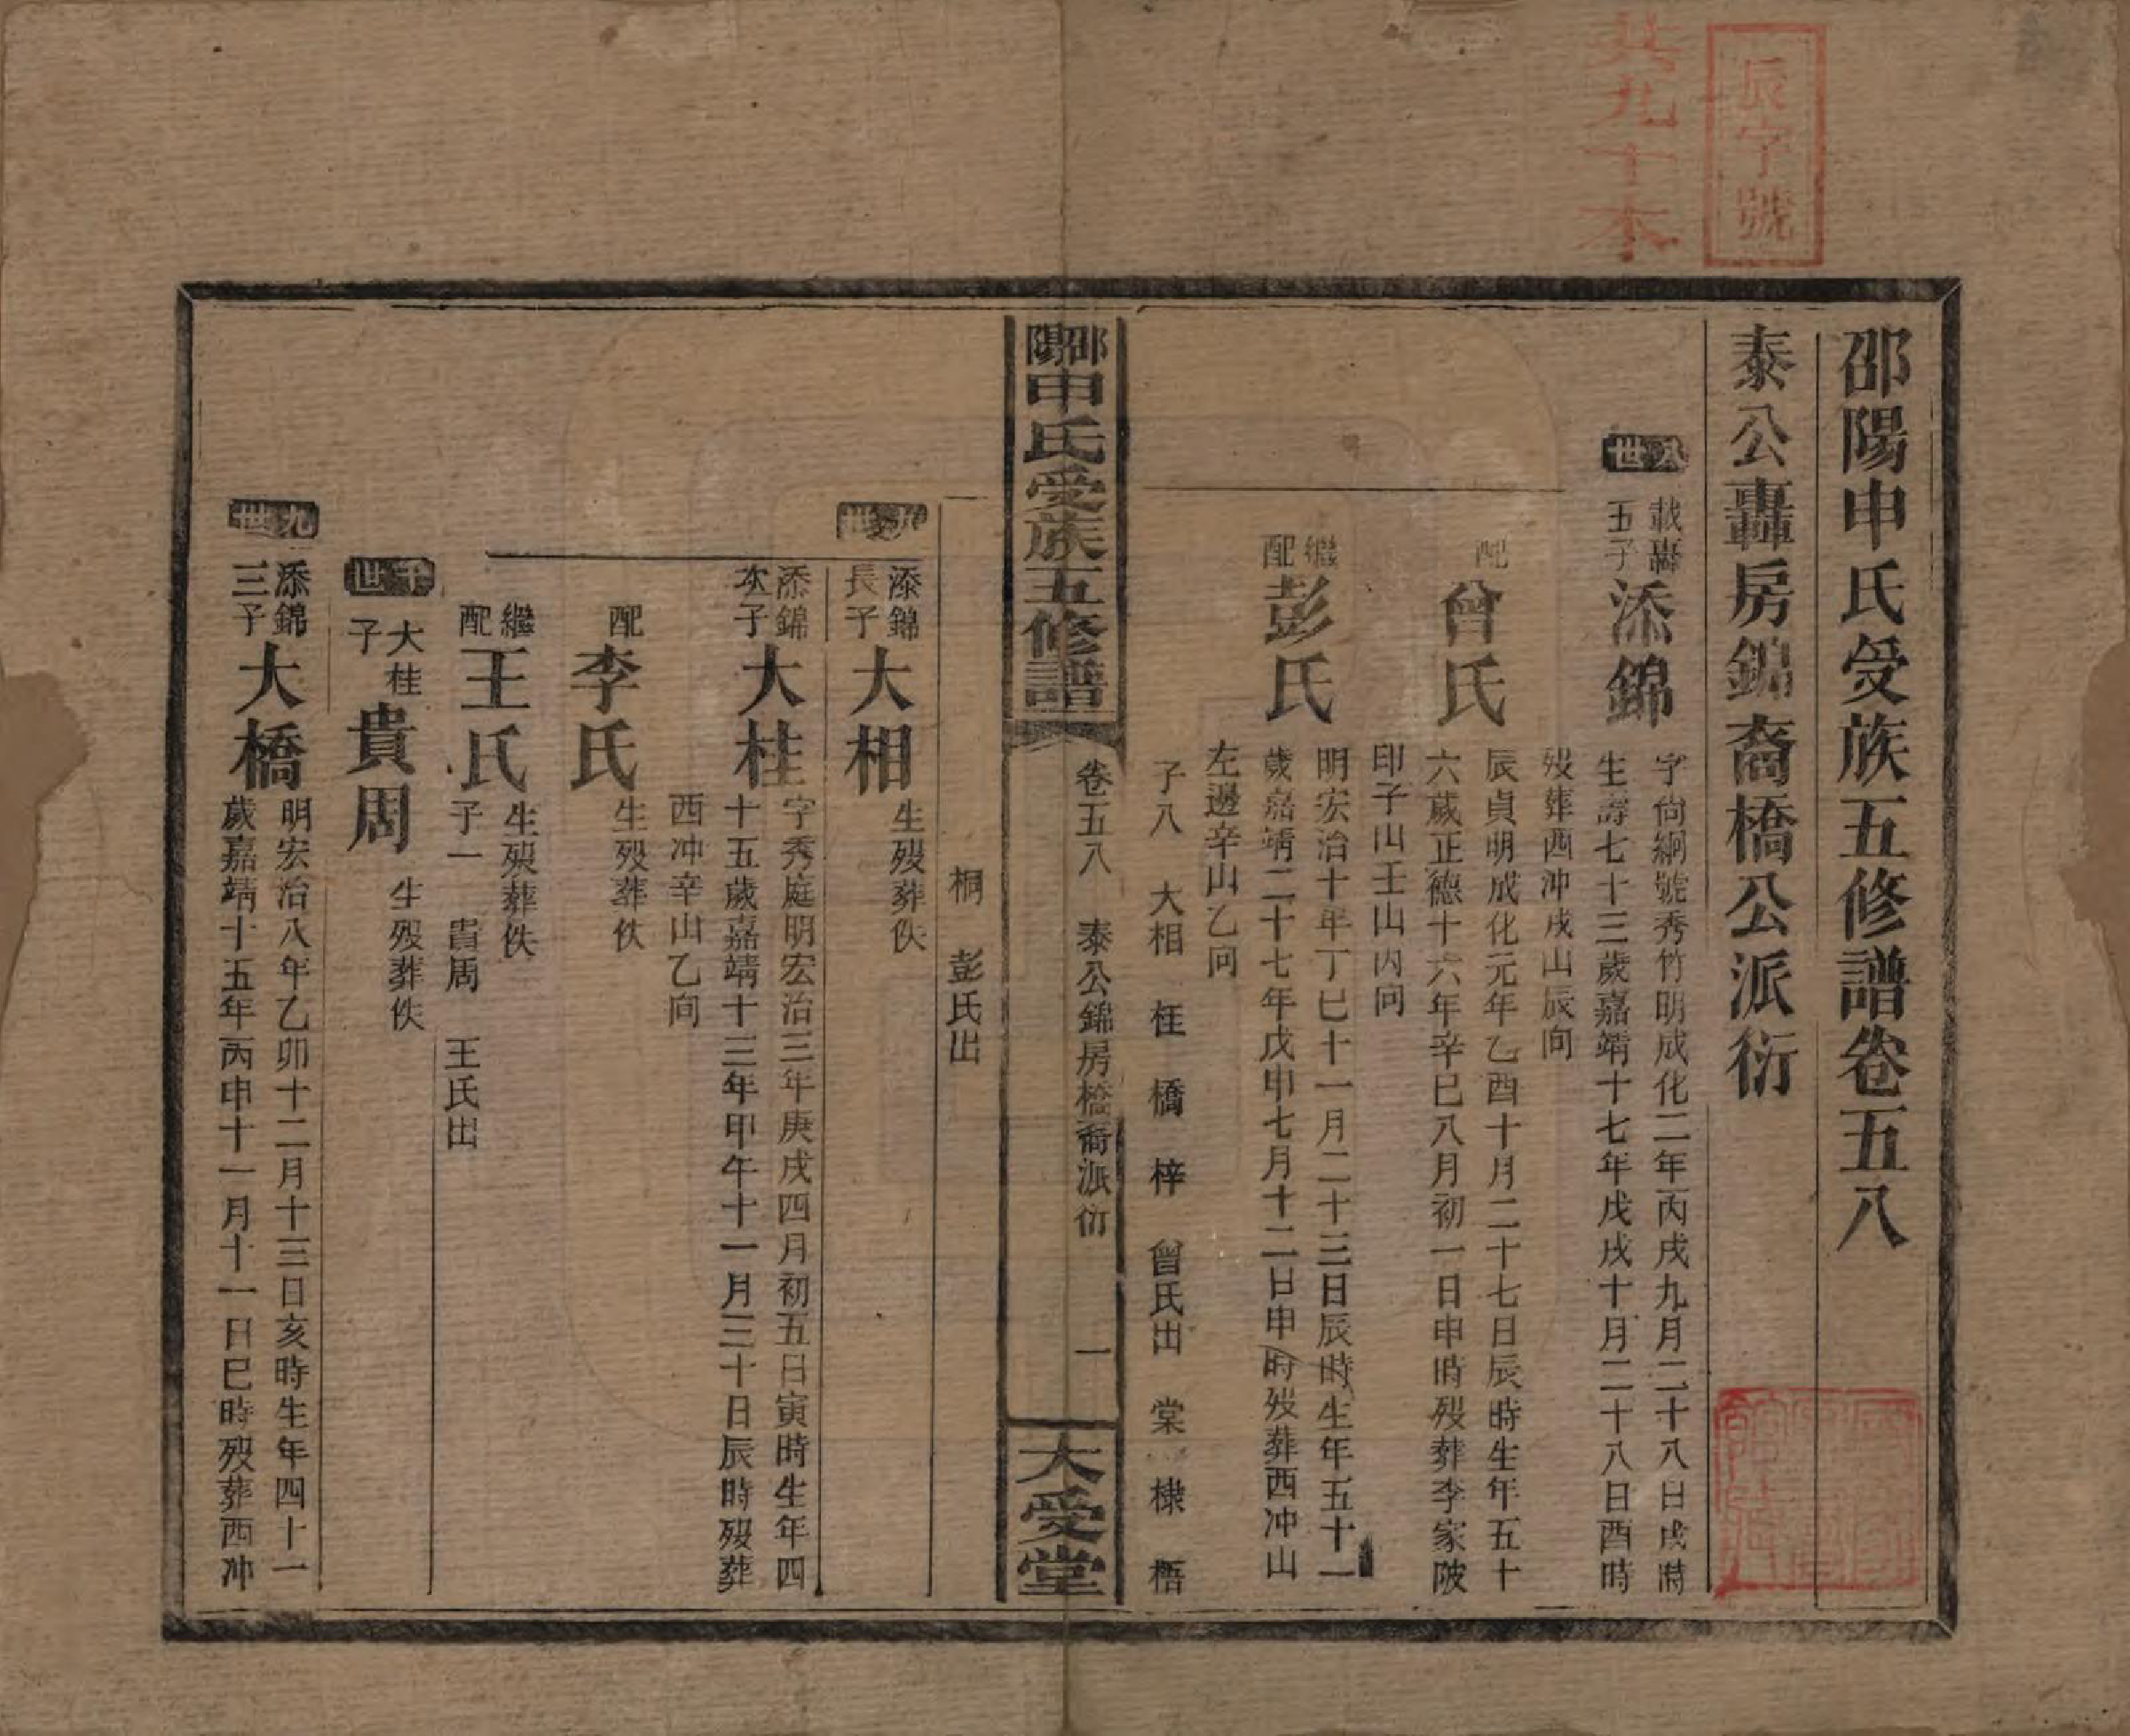 辰字號
共九十本
邵陽申氏受族五修譜卷五八
泰公轟房錦裔橋公派衍
八世
載轟
五子
添錦
字尙絅號秀竹明成化二年丙戌九月二十八日戌時
生壽七十三歲嘉靖十七年戊戌十月二十八日酉時
歿葬西冲戌山辰向
配
曾氏
辰貞明成化元年乙酉十月二十七日辰時生年五十
六歲正德十六年辛巳八月初一日申時歿葬李家陂
印子山壬山丙向
繼
配
彭氏
明宏治十年丁巳十一月二十三日辰時生年五十一
歲嘉靖二十七年戊申七月十二日申時歿葬西冲山
左邊辛山乙向
子八　大相　桂　橋　梓　曾氏出　棠　棣　梧
邵陽申氏受族五修譜
卷五八　泰公錦房橋裔派衍　一
大受堂
桐　彭氏出
九世
添錦
長子
大相
生歿葬佚
添錦
次子
大桂
字秀庭明宏治三年庚戌四月初五日寅時生年四
十五歲嘉靖十三年甲午十一月三十日辰時歿葬
西冲辛山乙向
配
李氏
生歿葬佚
繼
配
王氏
生歿葬佚
子一　貴周　王氏出
十世
大桂
子
貴周
生歿葬佚
九世
添錦
三子
大橋
明宏治八年乙卯十二月十三日亥時生年四十一
歲嘉靖十五年丙申十一月十一日巳時歿葬西冲